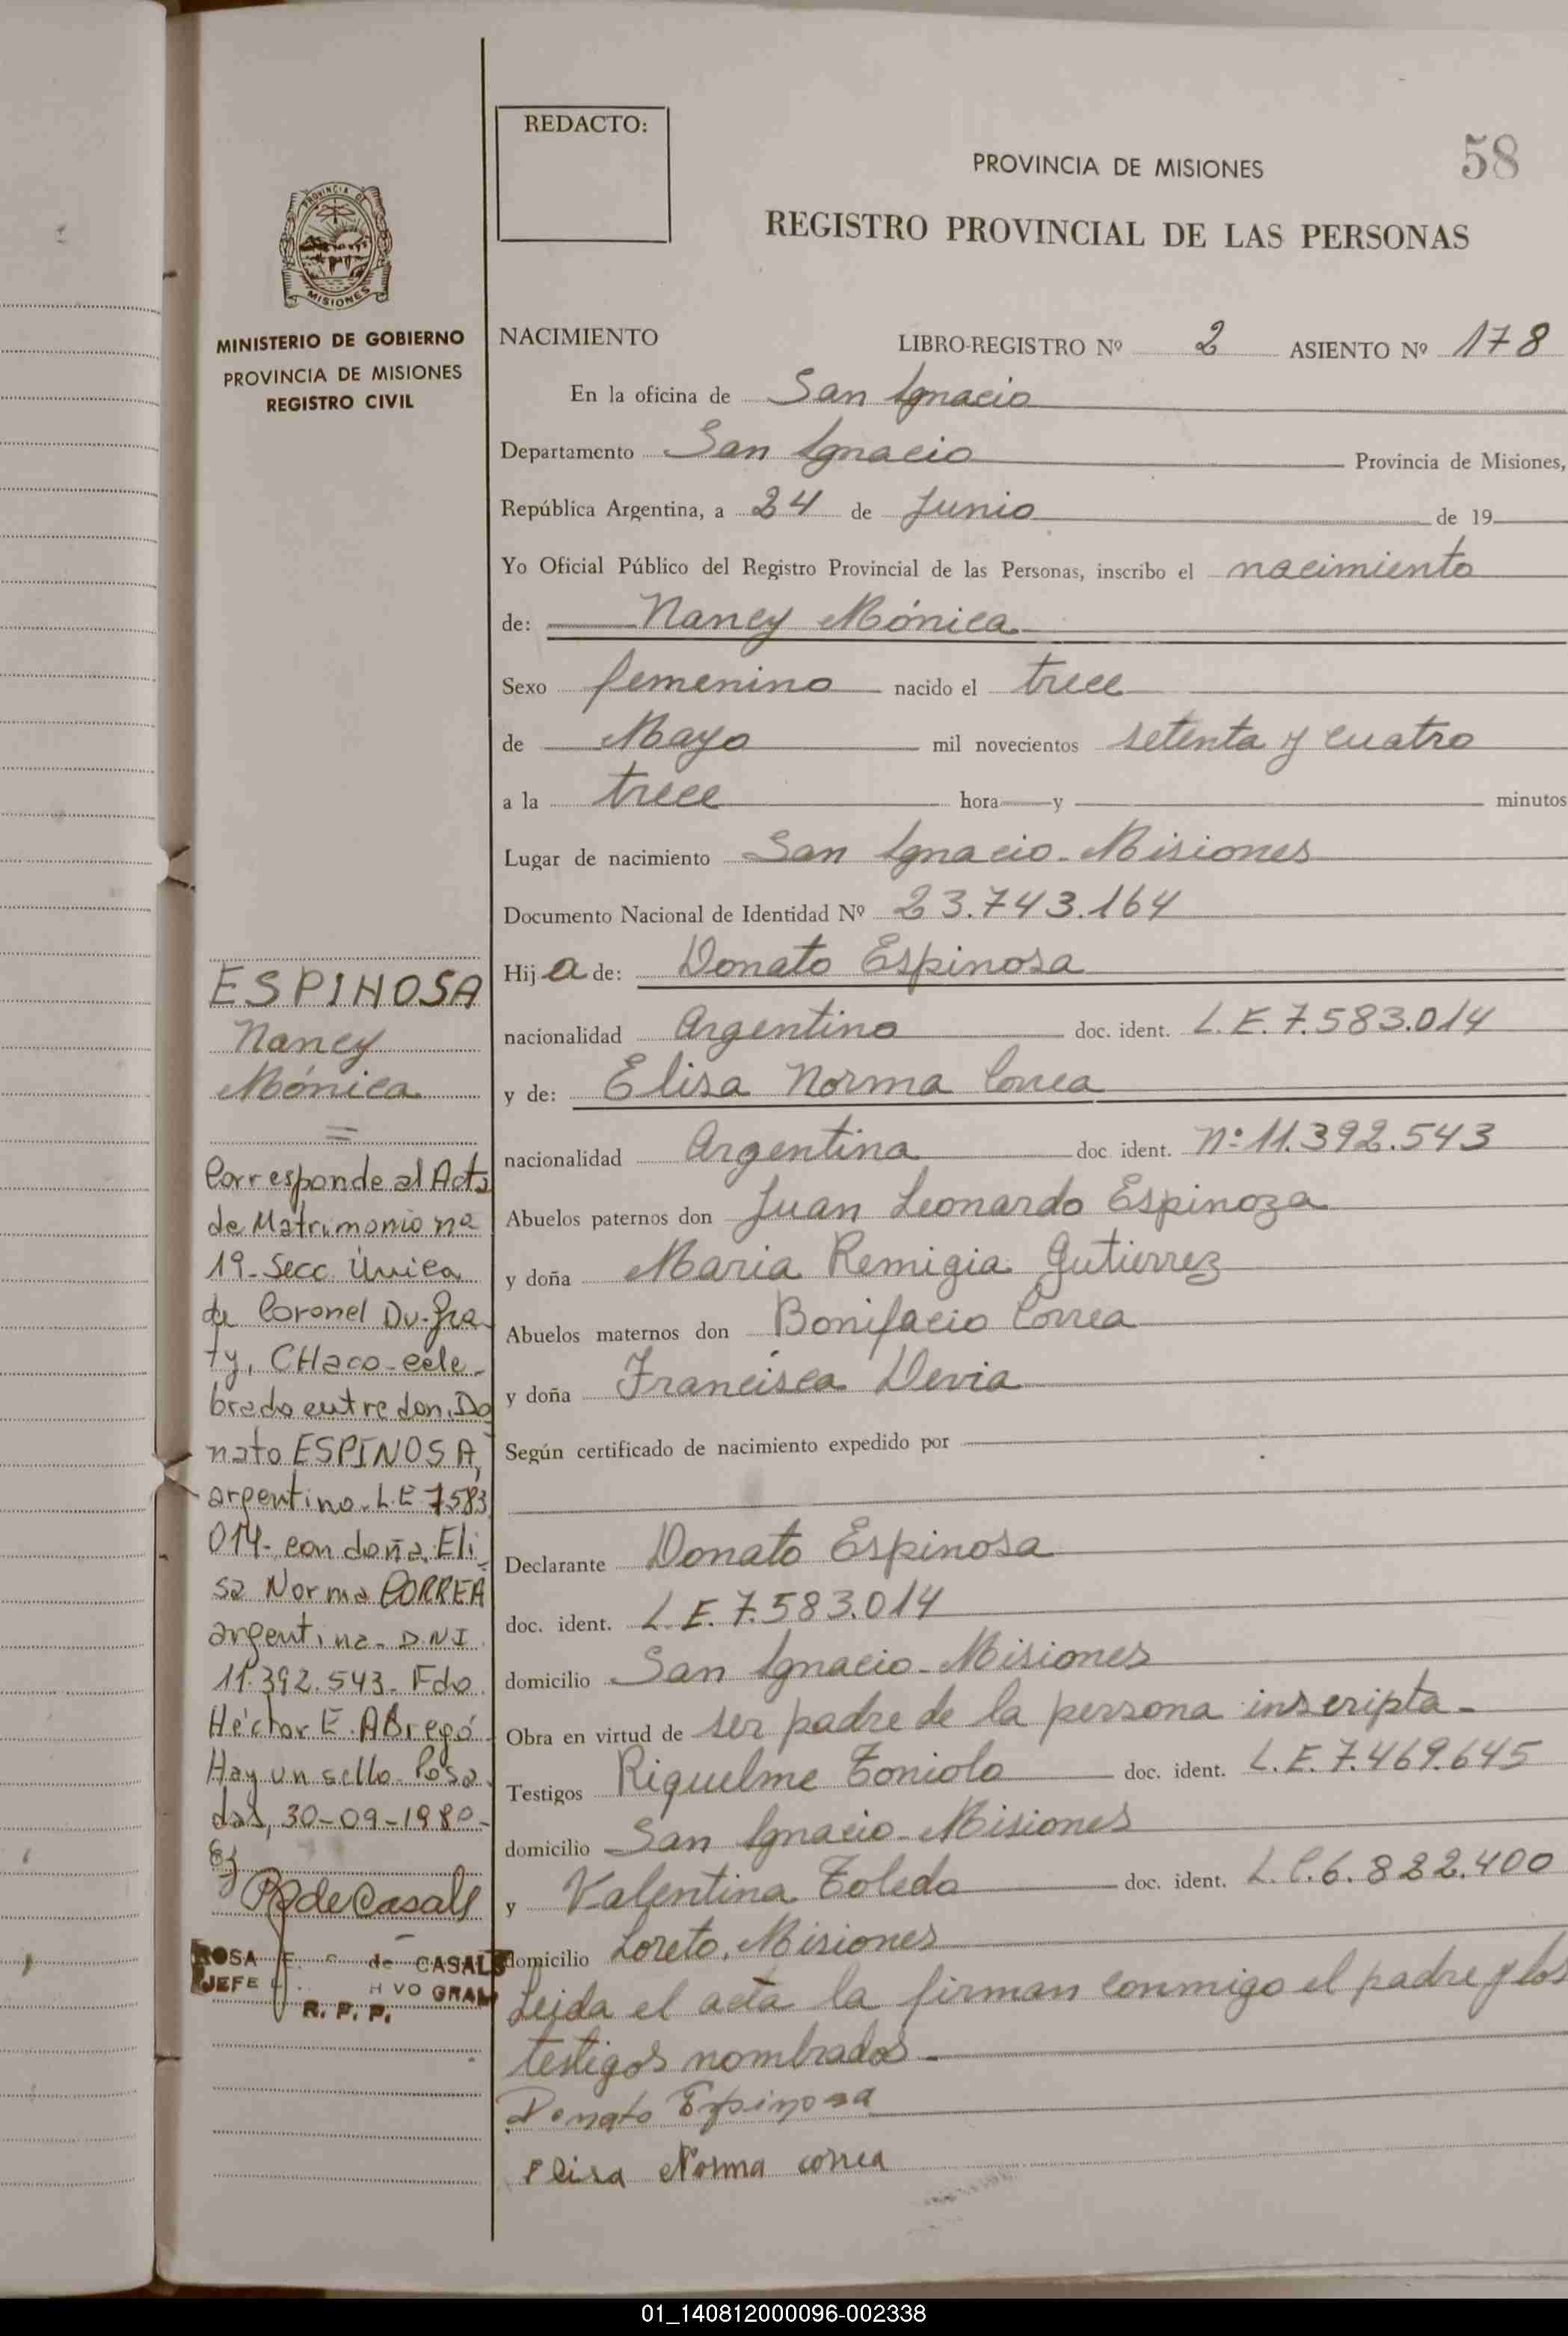 REDACTO:
58
PROVINCIA DE MISIONES
REGISTRO PROVINCIAL DE LAS PERSONAS
PROVINCIA DE
MISIONES
MINISTERIO DE GOBIERNO
PROVINCIA DE MISIONES
REGISTRO CIVIL
NACIMIENTO LIBRO-REGISTRO Nº 2 ASIENTO Nº 178
En la oficina de San Ignacio
Departamento San Ignacio Provincia de Misiones,
República Argentina, a 24 de Junio de 19
Yo Oficial Público del Registro Provincial de las Personas, inscribo el nacimiento
de: Nancy Mónica
Sexo femenino nacido el trece
de Mayo mil novecientos setenta y cuatro
a la trece hora y minutos
Lugar de nacimiento San Ignacio - Misiones
Documento Nacional de Identidad Nº 23.743.164
Hija de: Donato Espinosa
nacionalidad Argentino doc. ident. L.E. 7.583.014
y de: Elisa Norma Correa
nacionalidad Argentina doc ident. nº 11.392.543
Abuelos paternos don Juan Leonardo Espinoza
y doña Maria Remigia Gutierrez
Abuelos maternos don Bonifacio Correa
y doña Francisca Devia
Según certificado de nacimiento expedido por
Declarante Donato Espinosa
doc. ident. L.E. 7.583.014
domicilio San Ignacio - Misiones
Obra en virtud de ser padre de la persona inscripta -
Testigos Riquelme Toniolo doc. ident. L.E. 7.469.645
domicilio San Ignacio - Misiones
y Valentina Toledo doc. ident. L.C. 6.822.400
domicilio Loreto, Misiones
Leida el acta la firman conmigo el padre y los
testigos nombrados -
Donato Espinosa
Elisa Norma correa
ESPINOSA
Nancy
Mónica
=
Corresponde al Acta
de Matrimonio nº
19 - Secc. Única
de Coronel Du-Gra
ty, CHaco - cele-
brado entre don Do
nato ESPINOSA,
argentino - L.E 7583
014 - con doña Eli
sa Norma CORREA
argentina - D.N.I
11.392.543 - Fdo.
Héctor E. ABregó
Hay un sello. Posa
das, 30-09-1980 -
de Casals
ROSA de CASALS
JEFE VO GRAL
R. P. P.
01_140812000096-002338